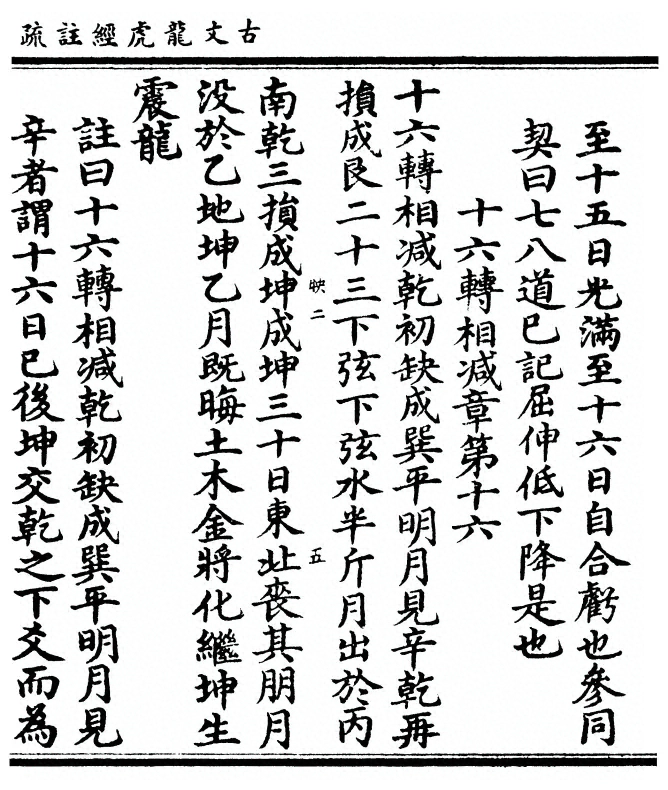 古文龍虎經註疏
至十五日光滿至十六日自合虧也參同
契曰七八道已記屈伸低下降是也
十六轉相減章第十六
十六轉相減乾初缺成巽平明月見辛乾再
損成艮二十三下弦下弦水半斤月出於丙
南乾三損成坤成坤三十日東北喪其朋月
映二
五
没於乙地坤乙月既晦土木金將化繼坤生
震龍
註曰十六轉相減乾初缺成巽平明月見
辛者謂十六日已後坤交乾之下爻而為